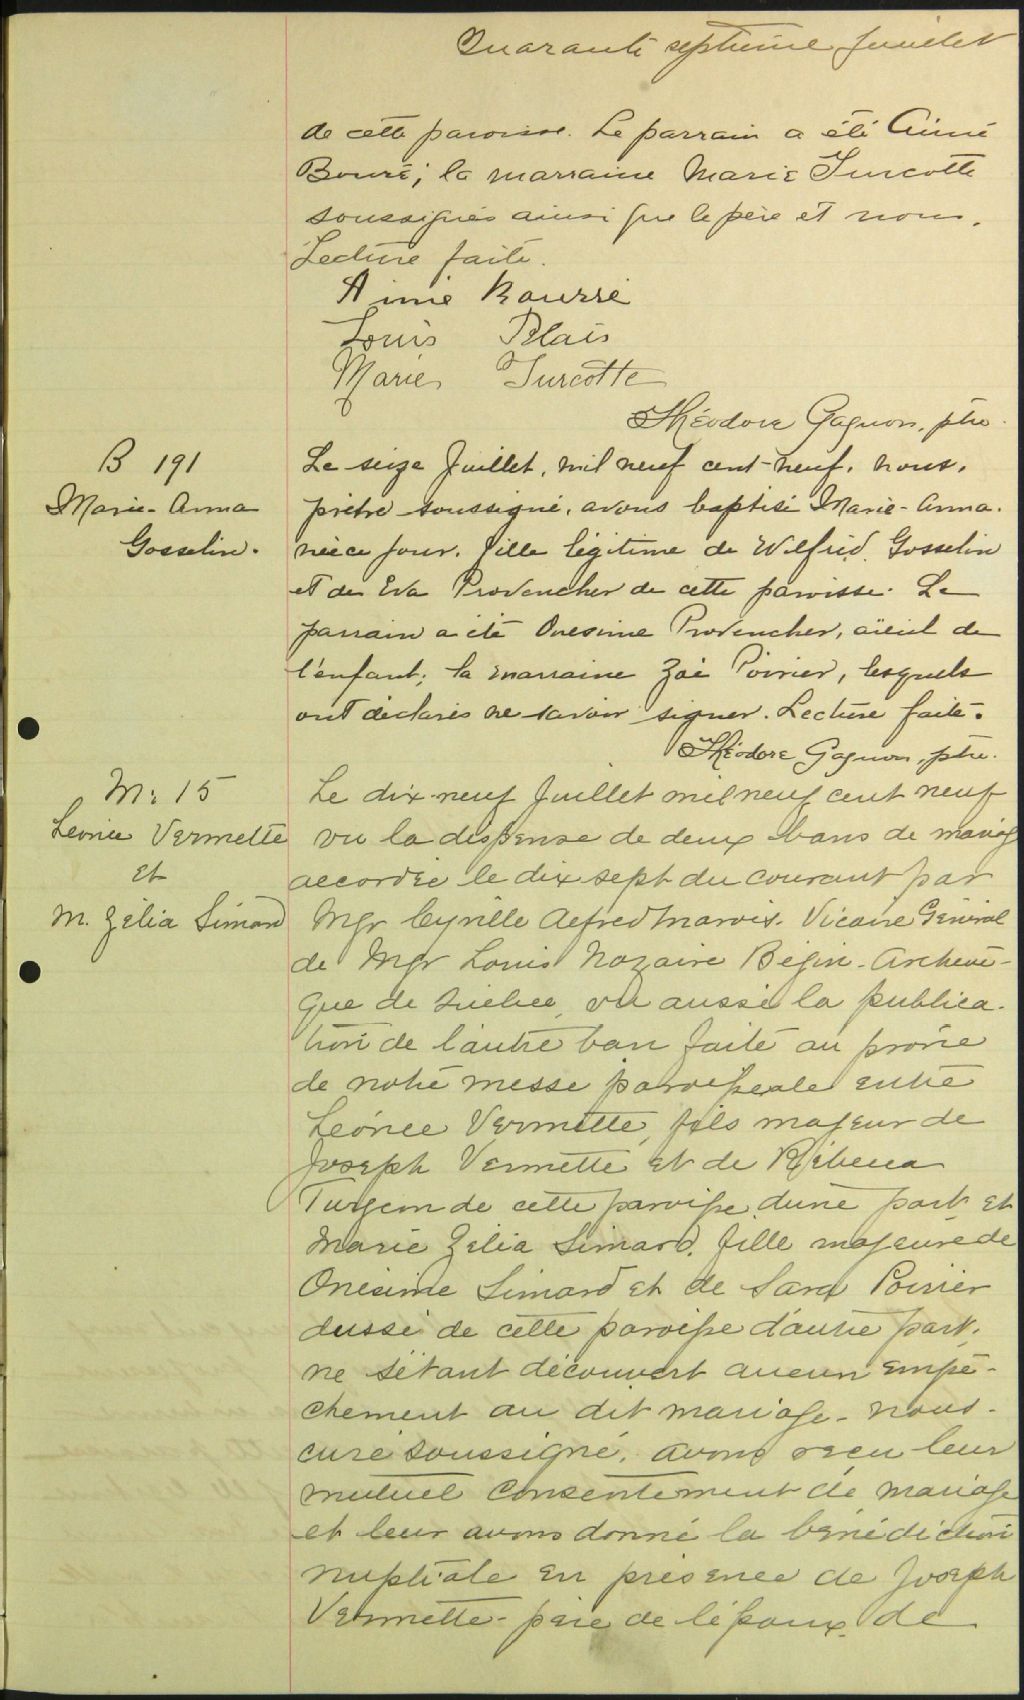 Quarante septième feuillet
de cette paroisse. Le parrain a été Aimé
Bourré; la marraine Marie Turcotte
soussignés ainsi que le père et nous.
Lecture faite.
Aimé Bourré
Louis Blais
Marie Turcotte
Théodore Gagnon, ptre.
B 191
Marie-Anna
Gosselin.
Le seize Juillet, mil neuf cent-neuf, nous,
prêtre soussigné, avons baptisé Marie-Anna.
née ce jour, fille légitime de Wilfrid Gosselin
et de Eva Provencher de cette paroisse. Le
parrain a été Onésime Provencher, aïeul de
l'enfant; la marraine Zoé Poirier, lesquels
ont déclarés ne savoir signer. Lecture faite.
Théodore Gagnon, ptre.
M: 15
Léonce Vermette
et
M. Zélia Simard
Le dix-neuf Juillet mil neuf cent neuf
vu la dispense de deux bans de mariage
accordée le dix sept du courant par
Mgr Cyrille Alfred Marois. Vicaire Général
de Mgr Louis Nazaire Bégin-Archevê-
que de Québec, vu aussi la publica-
tion de l'autre ban faite au prône
de notre messe paroissiale entre
Léonce Vermette, fils majeur de
Joseph Vermette et de Rébecca
Turgeon de cette paroisse d'une part et
Marie Zélia Simard, fille majeure de
Onésime Simard et de Sara Poirier
aussi de cette paroisse d'autre part.
ne s'étant découvert aucun empê-
chement au dit mariage-nous-
curé soussigné, avons reçu leur
mutuel consentement de mariage
et leur avons donné la bénédiction
nuptiale en présence de Joseph
Vermette-père de l'époux, de